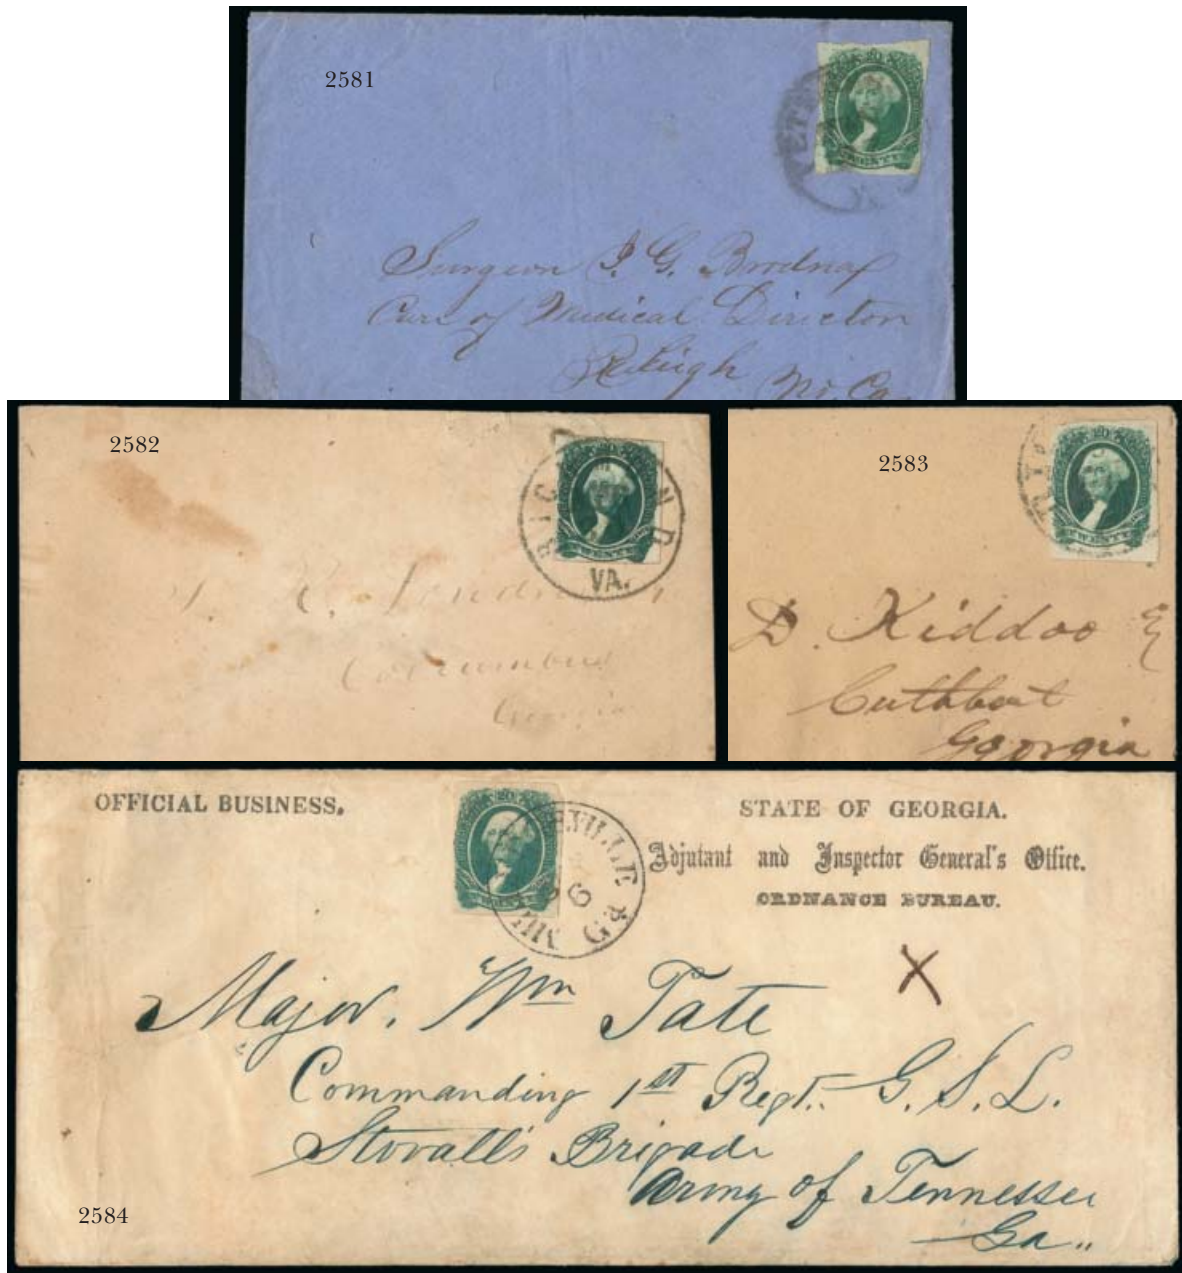 2581
Surgeon J. G. Brodnax
Care of Medical Director
Raleigh No. Ca.
2582
RICHMOND
VA.
Columbus
Georgia
2583
D. Kiddoo
Cuthbert
Georgia
OFFICIAL BUSINESS.
STATE OF GEORGIA.
Adjutant and Inspector General's Office.
ORDNANCE BUREAU.
6
Major. Wm Tate
Commanding 1st Regt. G. S. L.
Stovall's Brigade
Army of Tennessee
Ga..
2584